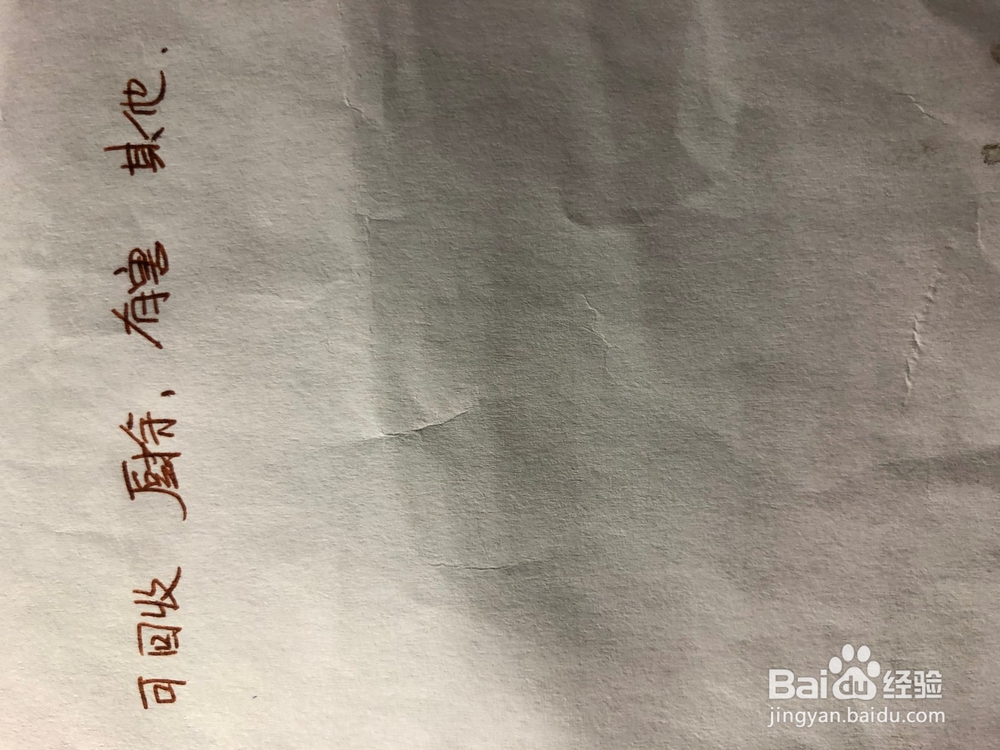 可回收 厨余、有害 其他.
Baidu 经验
jingyan.baidu.com